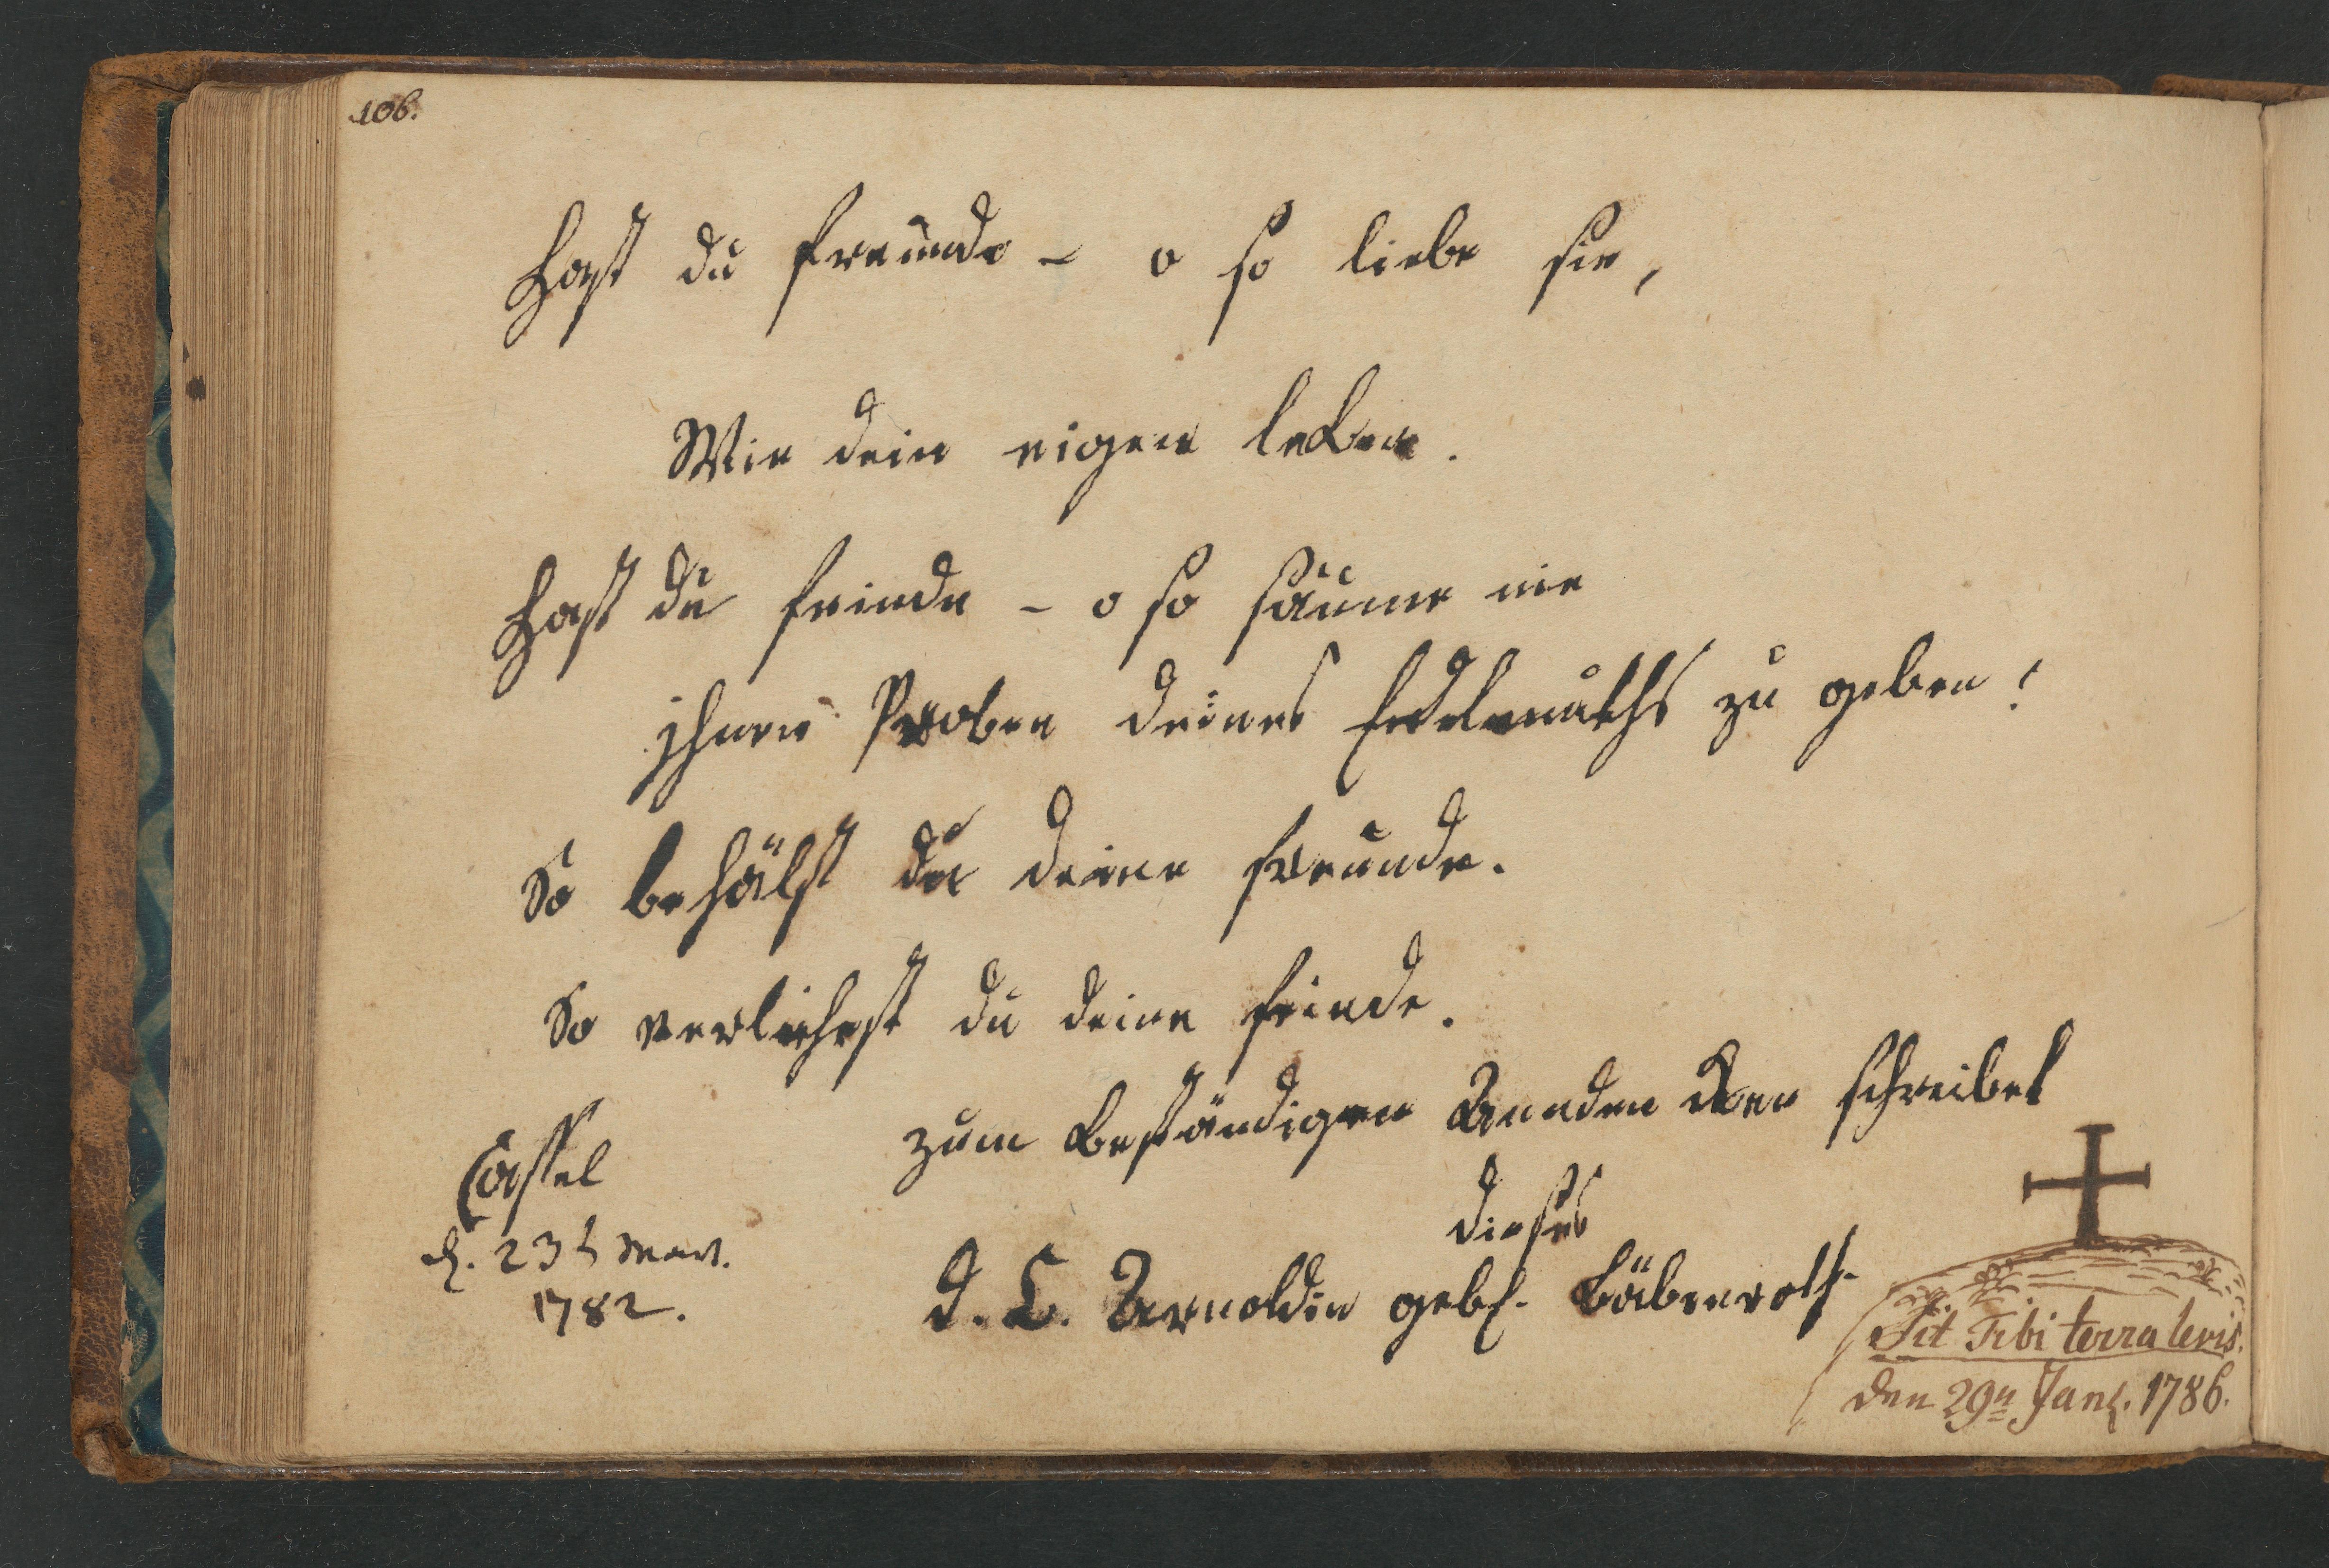 106.
Hast du freunde - o so liebe sie,
Wie dein eigen leben.
Hast du feinde - o so säume nie
jhnen Proben deines Edelmuths zu geben!
So behälst du deine freunde.
So verliehrst du deine feinde.
zum beständigen Anndencken schreibet
dieses
Cassel
d. 23t Mert.
1782.
D. L. Arnoldin gebh. Bäbenroth
Sit Tibi terra levis.
den 29n Jan. 1786.